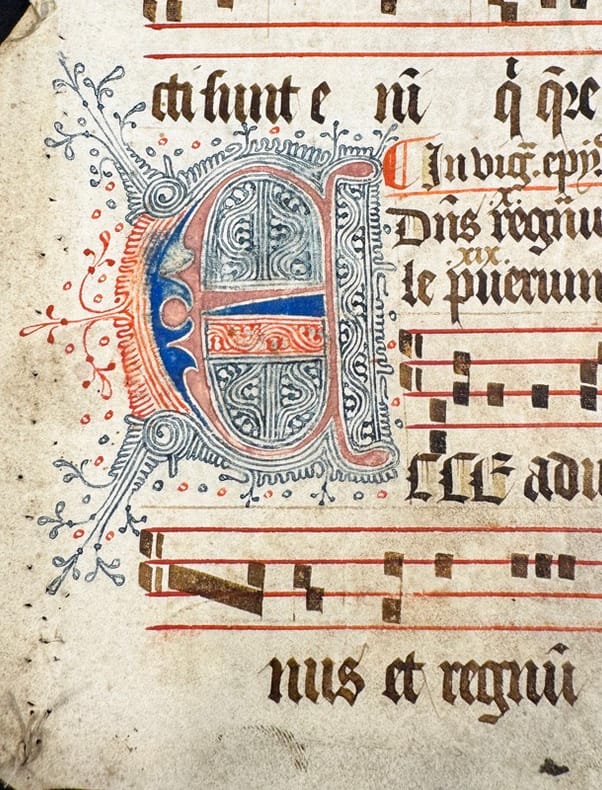 cti sunt e q̄ q̄re
In vig̃. epy
x
Dñs regnu
xix.
le puerum
ECCE adu
nus et regnū